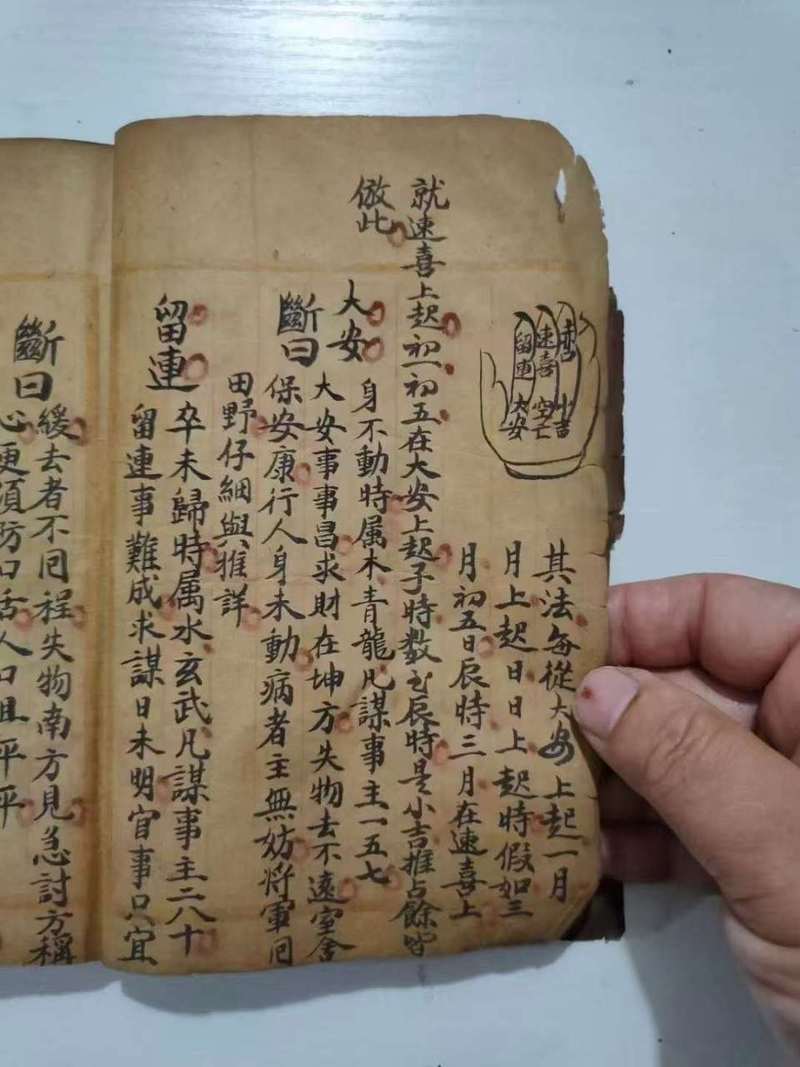 赤口
小吉
速喜
空亡
留連
大安
其法每從大安上起一月
月上起日日上起時假如三
月初五日辰時三月在速喜上
就速喜上起初一初五在大安上起子時数到辰時是小吉推占餘皆
倣此
大安
身不動時属木青龍凡謀事主一五七
斷曰
大安事事昌求財在坤方失物去不遠室舍
保安康行人身未動病者主無妨將軍囘
田野仔細與推詳
留連
卒未歸時属水玄武凡謀事主二八十
留連事難成求謀日未明官事只宜
斷曰
緩去者不囘程失物南方見急討方稱
心更須防口舌人口且平平